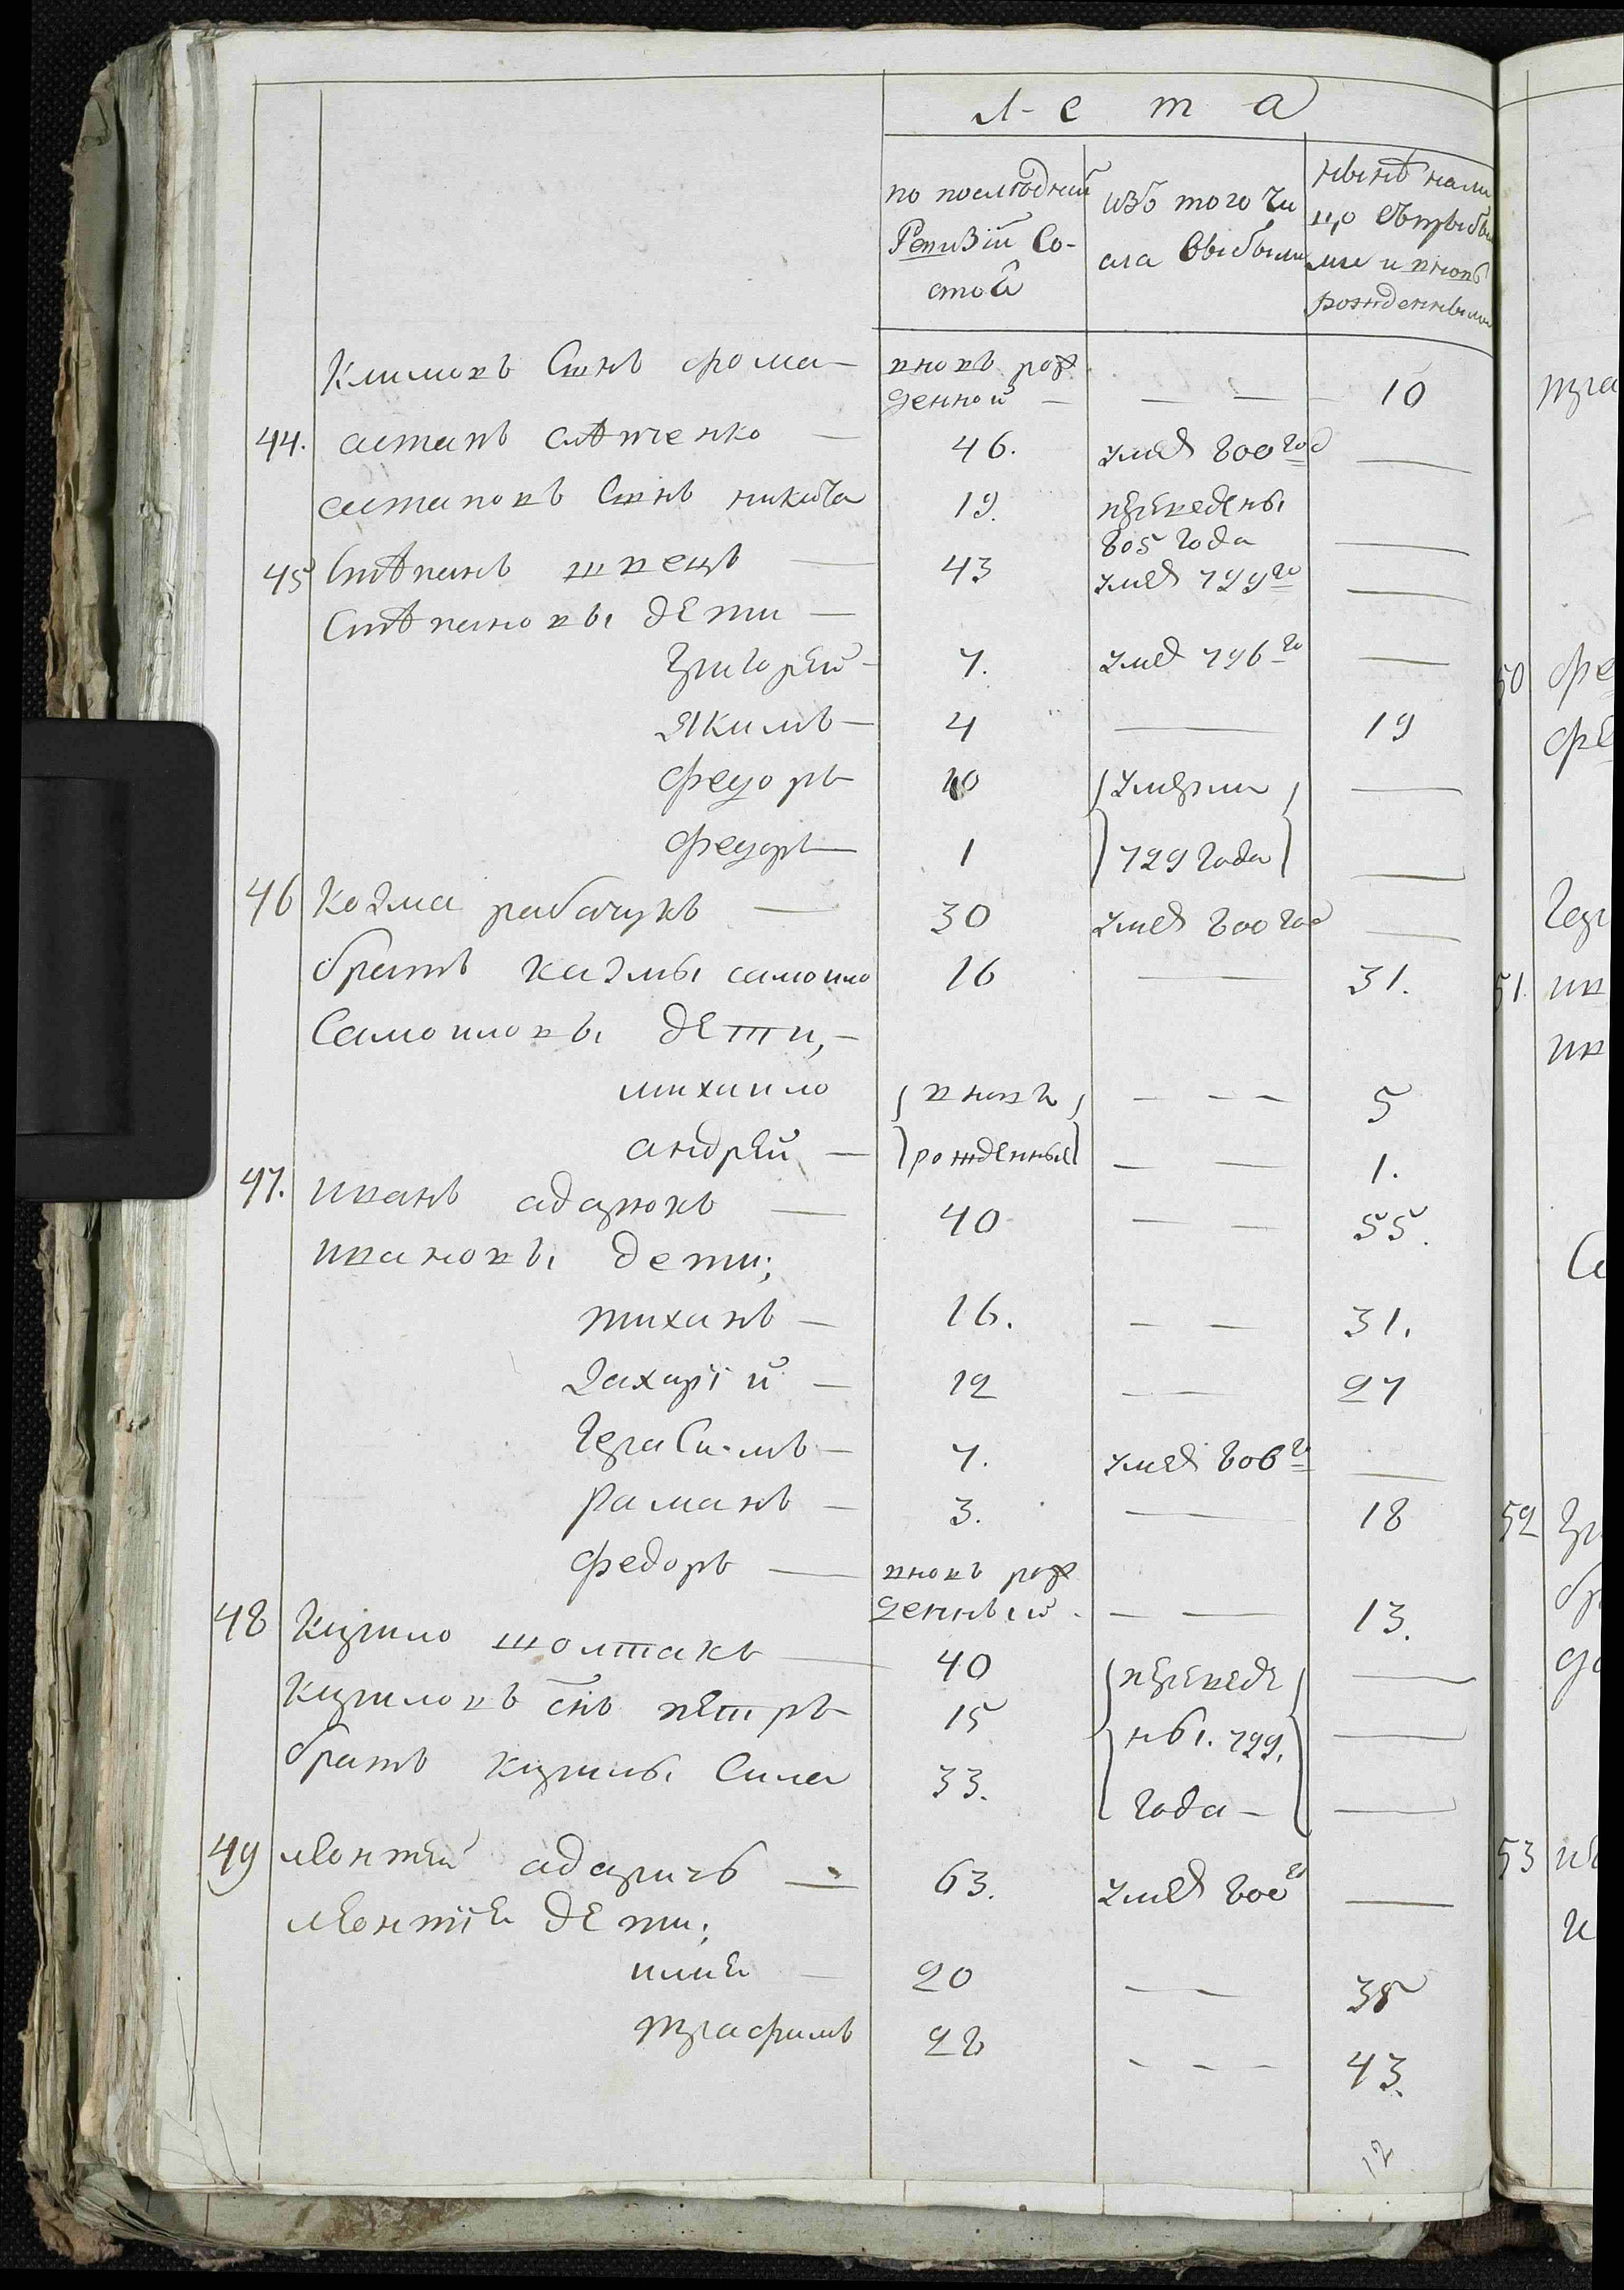 лета
по последней Ревизiи Состой
изъ того числа выбыли
нынѣ нали цо съ прибы лыи и вновь рожденными
Климовъ Сынъ фома — вновь рож денной — — — 10
44. астапъ слѣпченко — 46. умер 800 год —
астаповъ Сынъ никита 19. преведены 805 года —
45 Степанъ швецъ — 43 умер 799го —
Степановы дети —
григорей — 7. умер 796го —
Якимъ — 4 — 19
феѡдоръ 10 умерли —
феѡдоръ 1 799 года —
46 козма рабачукъ — 30 умер 800 год —
братъ казмы самоило 16 — 31.
Самоиловы дети, —
михаило вновь — — — 5
андрей — рожденные — — 1.
47. иванъ адарюкъ — 40 — — 55.
ивановы дети;
тиханъ — 16. — — 31.
Захарiй — 12 — 27
гераСимъ — 7. умер 806го —
раманъ — 3. — 18
федоръ — вновь рож денный — — — 13.
48 Кирило шолтакъ — 40 переведе —
Кириловъ снъ петръ 15 ны. 799. —
братъ кирилы Сила 33. года — —
49 леонтей адаричъ — 63. умер 800го —
леонтiя дети;
илия — 20 — 35
трафимъ 28 — — — 43.
12
50 фе
фе
гер
51. ив
ив
52 гри
бр
53